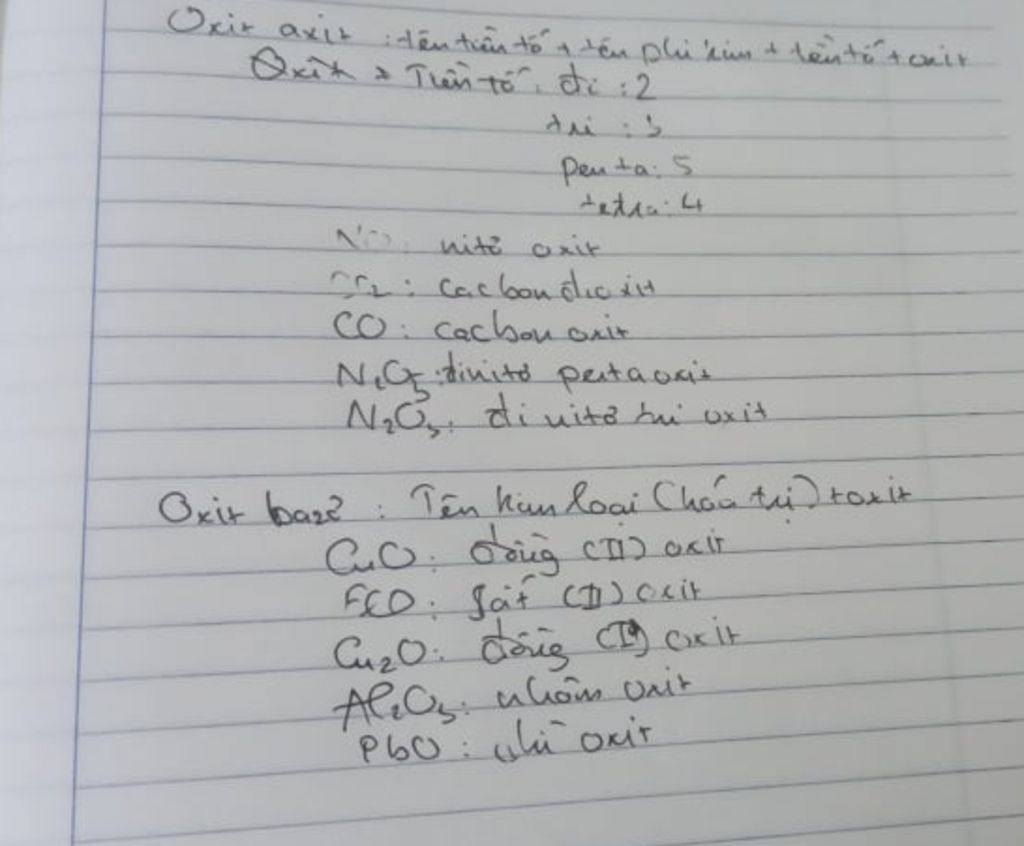 Oxit axit : tên tiền tố + tên phi kim + tiền tố + oxit
Oxit * Tiền tố : đi : 2
tri : 3
penta : 5
tetra : 4
NO : nitơ oxit
CO2 : cacbon đioxit
CO : cacbon oxit
N2O5 : đinitơ pentaoxit
N2O3 : đi nitơ tri oxit
Oxit bazơ : Tên kim loại (hoá trị) + oxit
CuO : đồng (II) oxit
FeO : sắt (II) oxit
Cu2O : đồng (I) oxit
Al2O3 : nhôm oxit
PbO : chì oxit